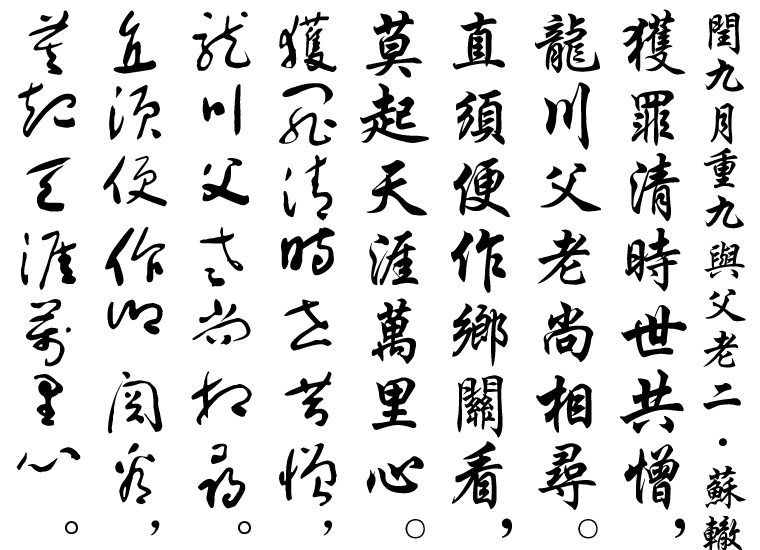 閏九月重九與父老二·蘇轍
獲罪清時世共憎，
龍川父老尚相尋。
直須便作鄉關看，
莫起天涯萬里心。
獲罪清時世共憎，
龍川父老尚相尋。
直須便作鄉關看，
莫起天涯萬里心。